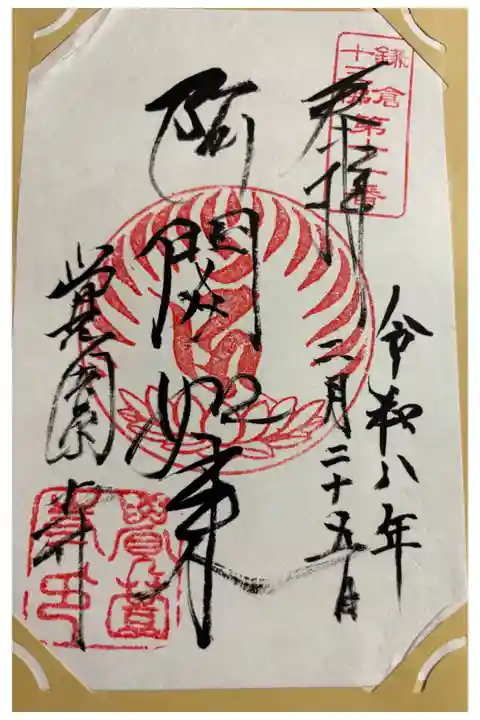 鎌倉
十三佛第十一番
奉拝
令和八年
二月二十五日
阿閦如来
覺園寺